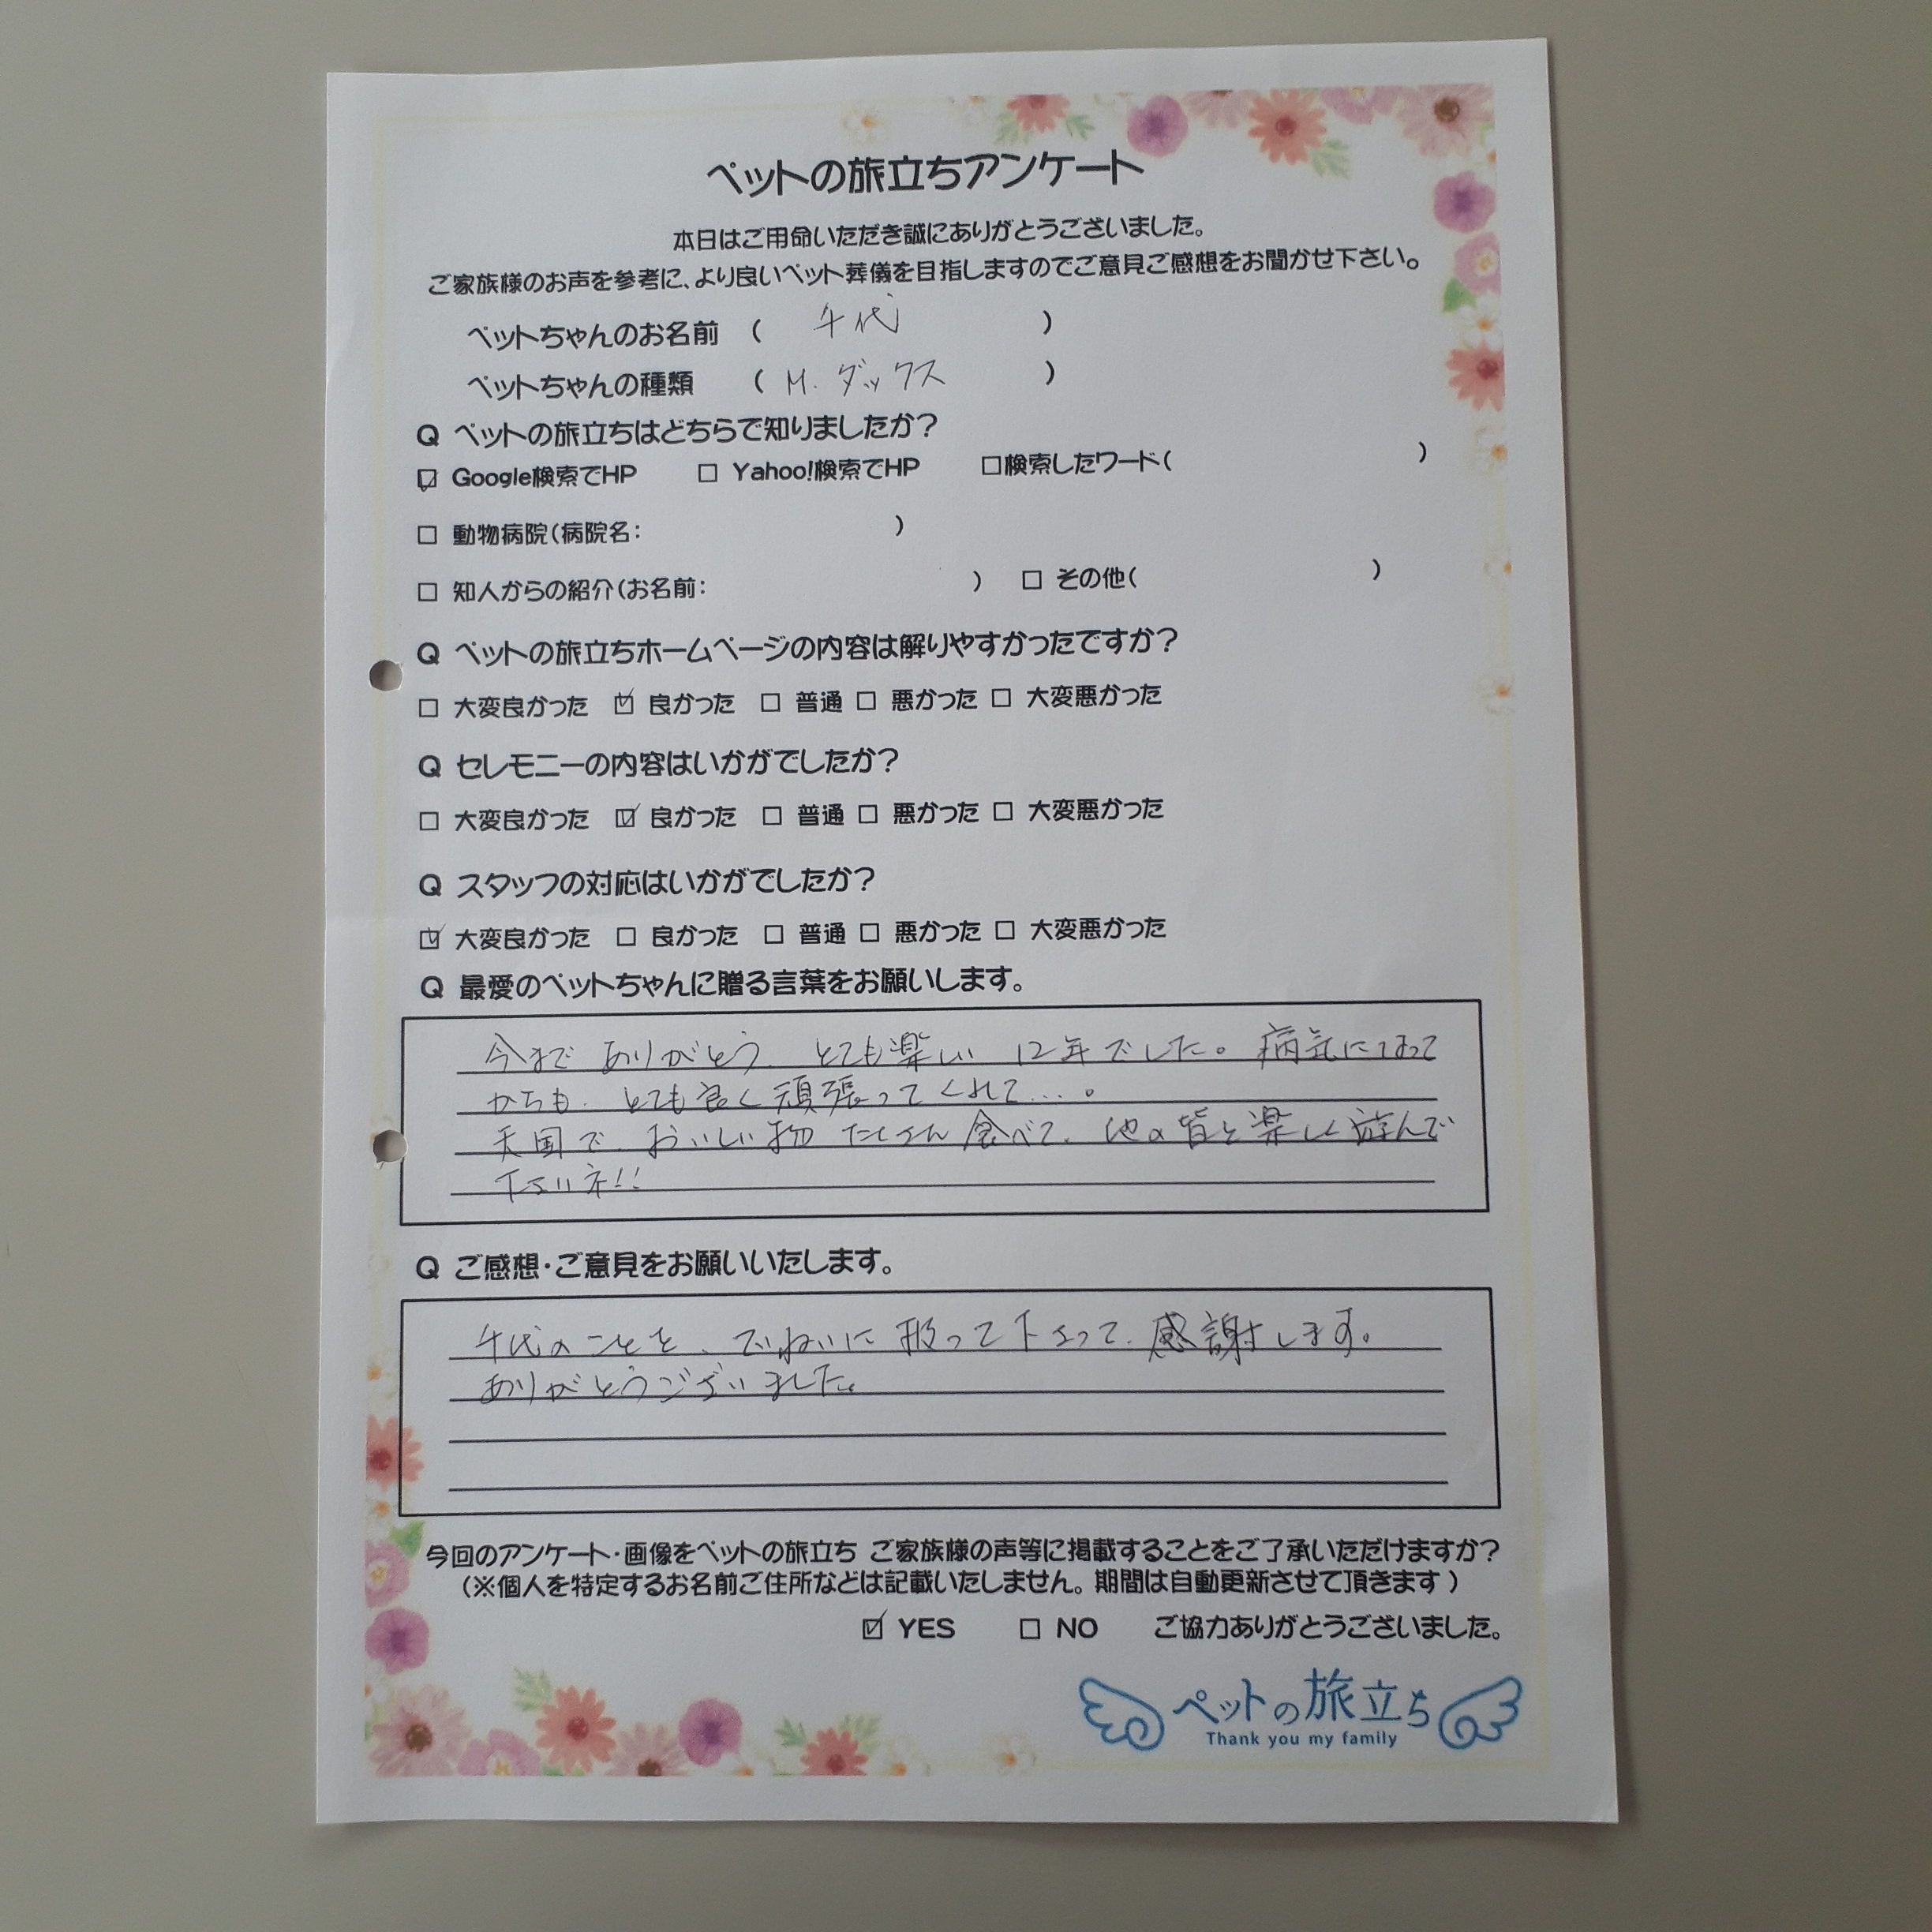 ペットの旅立ちアンケート
本日はご用命いただき誠にありがとうございました。
ご家族様のお声を参考に、より良いペット葬儀を目指しますのでご意見ご感想をお聞かせ下さい。
ペットちゃんのお名前 ( 千代 )
ペットちゃんの種類 ( M.ダックス )
Q ペットの旅立ちはどちらで知りましたか?
☑ Google検索でHP □ Yahoo!検索でHP □検索したワード( )
□ 動物病院(病院名: )
□ 知人からの紹介(お名前: ) □ その他( )
Q ペットの旅立ちホームページの内容は解りやすかったですか?
□ 大変良かった ☑ 良かった □ 普通 □ 悪かった □ 大変悪かった
Q セレモニーの内容はいかがでしたか?
□ 大変良かった ☑ 良かった □ 普通 □ 悪かった □ 大変悪かった
Q スタッフの対応はいかがでしたか?
☑ 大変良かった □ 良かった □ 普通 □ 悪かった □ 大変悪かった
Q 最愛のペットちゃんに贈る言葉をお願いします。
今まで ありがとう、とても楽しい 12年でした。病気になって
からも、とても良く頑張ってくれて…。
天国で、おいしい物 たくさん 食べて、他の皆と楽しく遊んで
下さいネ!!
Q ご感想・ご意見をお願いいたします。
千代のことを、ていねいに扱って下さって、感謝します。
ありがとうございました。
今回のアンケート・画像をペットの旅立ち ご家族様の声等に掲載することをご了承いただけますか?
(※個人を特定するお名前ご住所などは記載いたしません。期間は自動更新させて頂きます)
☑ YES □ NO ご協力ありがとうございました。
ペットの旅立ち
Thank you my family